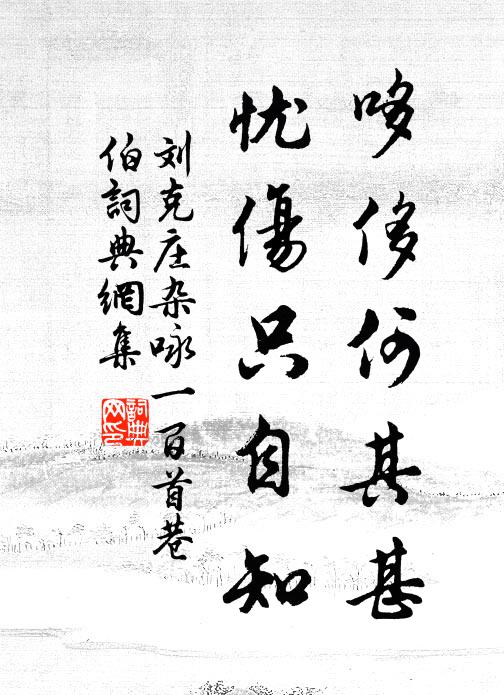 哆侈何其甚
忧傷只自知
刘克庄杂咏一百首巷
伯詞典網集
詞典
网印